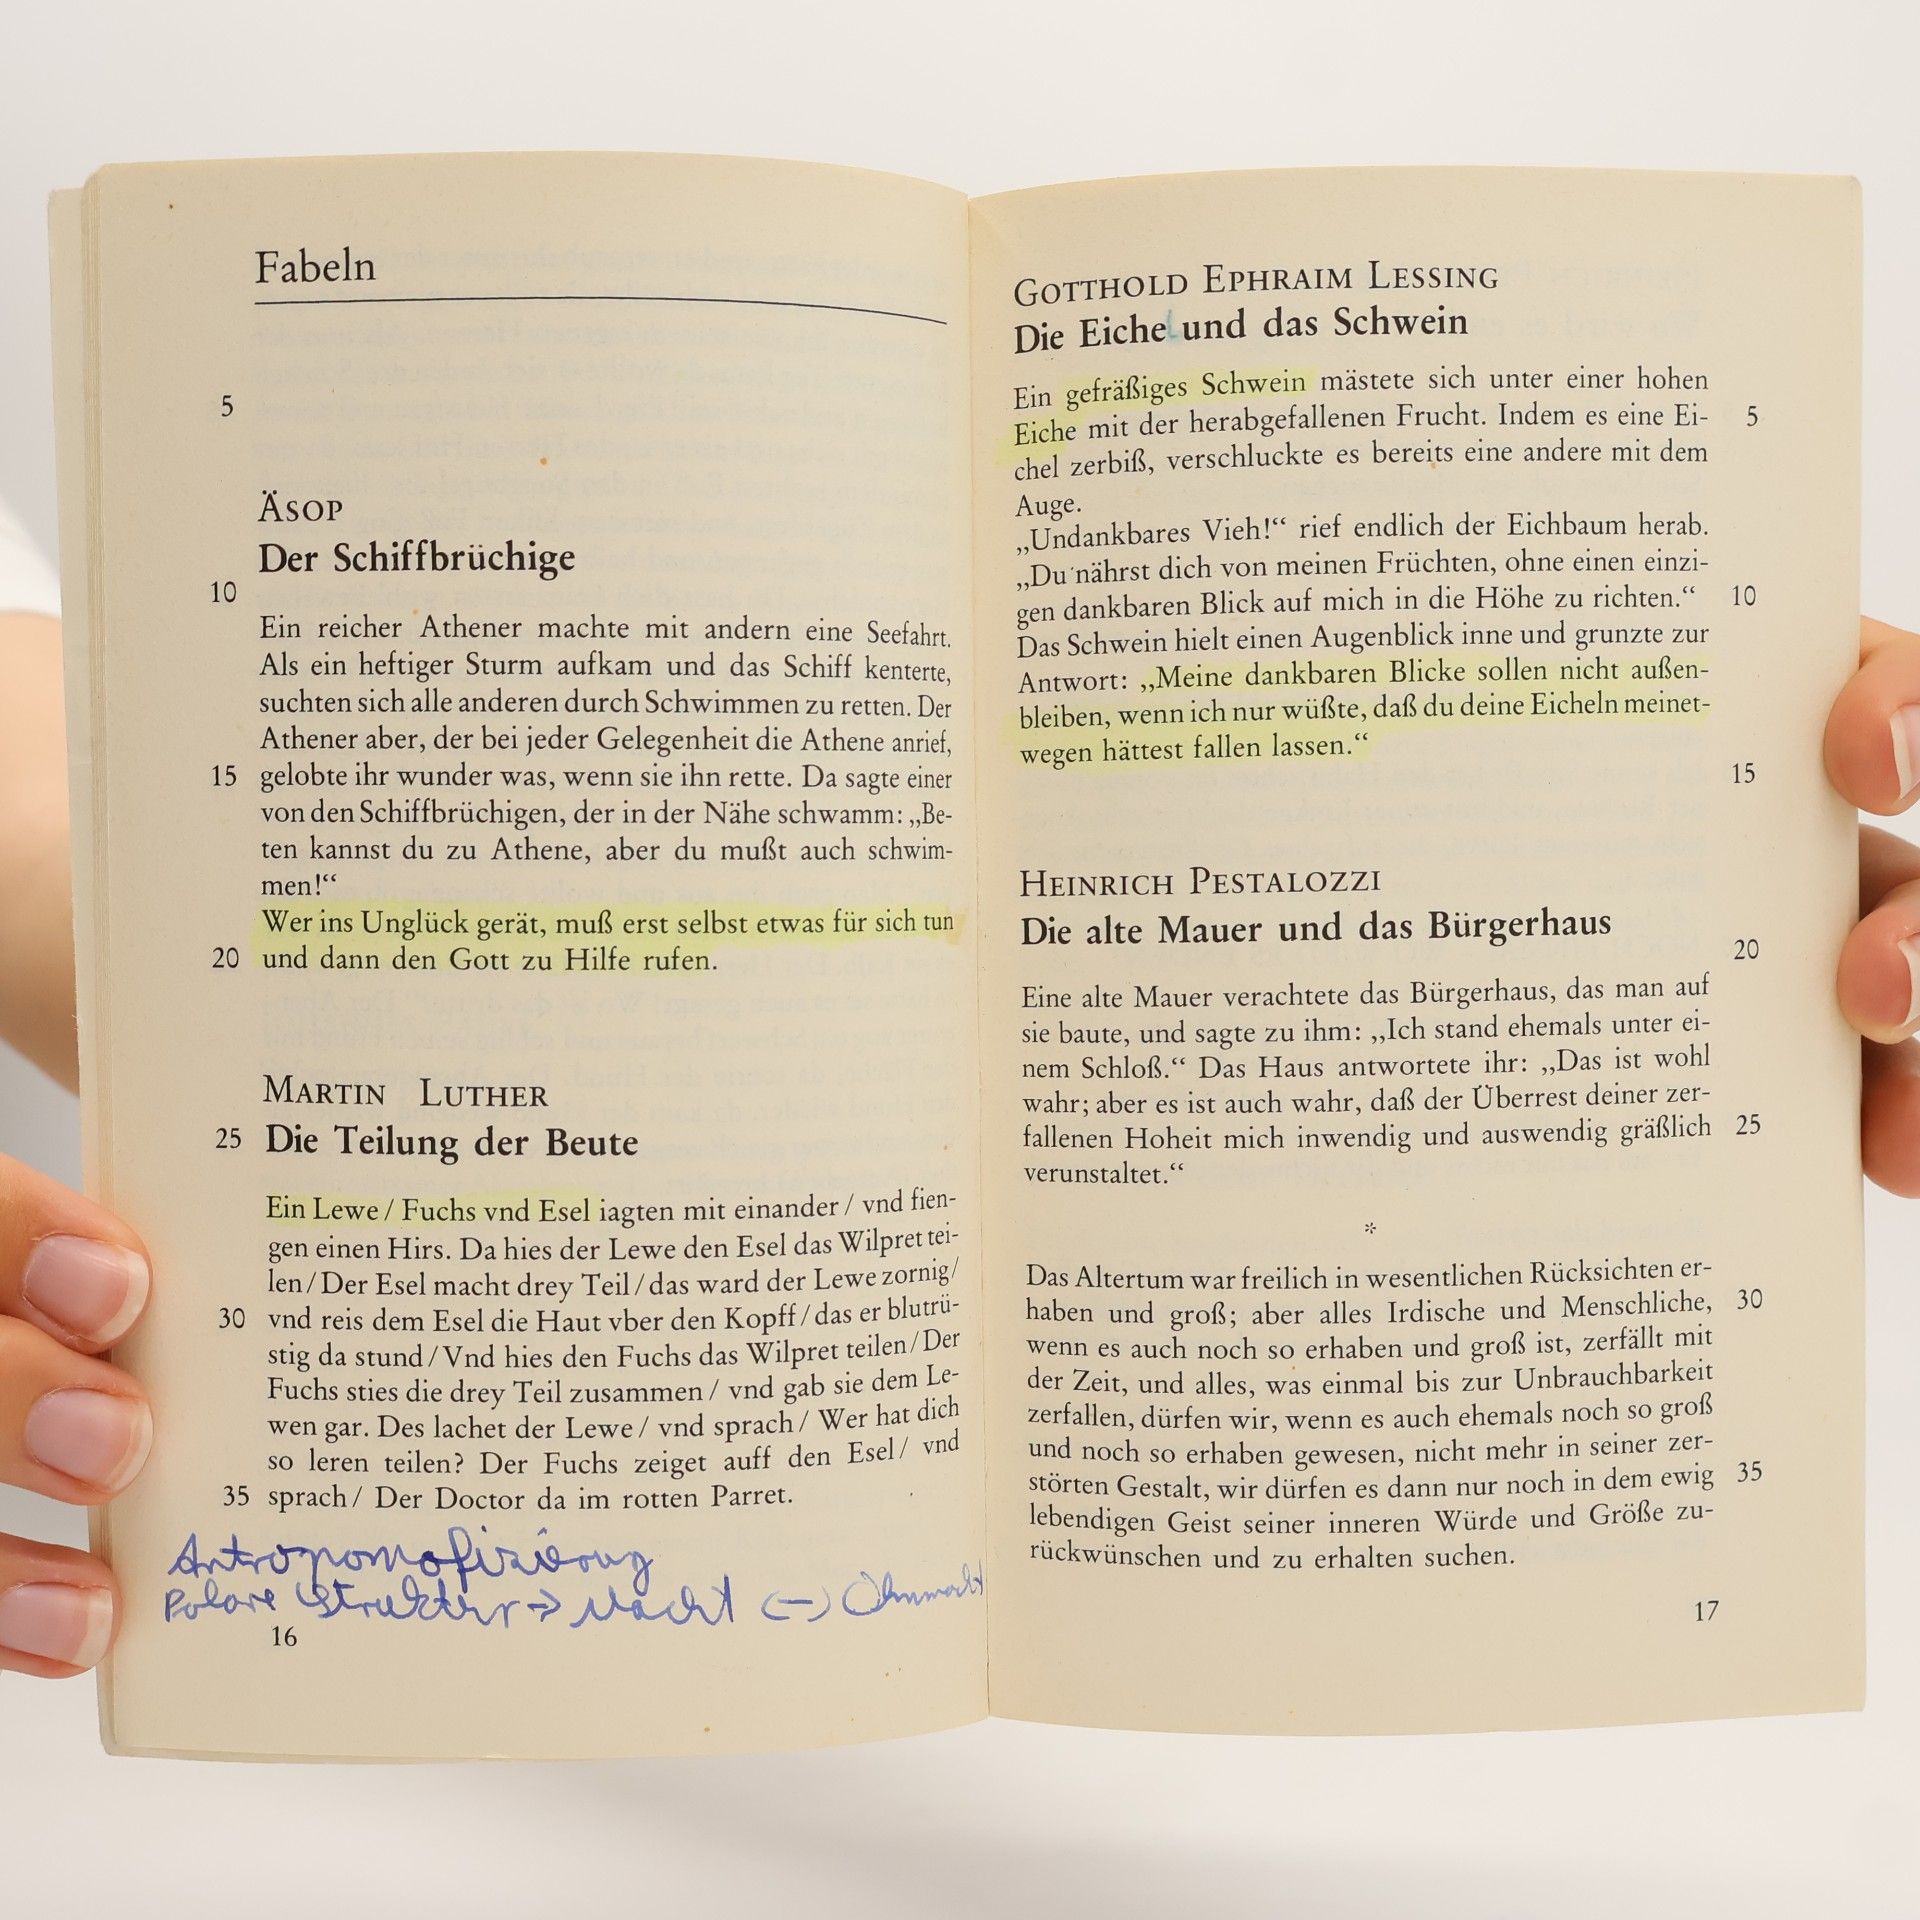 Fabeln
5
ÄSOP
Der Schiffbrüchige
10
Ein reicher Athener machte mit andern eine Seefahrt.
Als ein heftiger Sturm aufkam und das Schiff kenterte,
suchten sich alle anderen durch Schwimmen zu retten. Der
Athener aber, der bei jeder Gelegenheit die Athene anrief,
15 gelobte ihr wunder was, wenn sie ihn rette. Da sagte einer
von den Schiffbrüchigen, der in der Nähe schwamm: „Be-
ten kannst du zu Athene, aber du mußt auch schwim-
men!“
Wer ins Unglück gerät, muß erst selbst etwas für sich tun
20 und dann den Gott zu Hilfe rufen.
MARTIN LUTHER
25 Die Teilung der Beute
Ein Lewe / Fuchs vnd Esel iagten mit einander / vnd fien-
gen einen Hirs. Da hies der Lewe den Esel das Wilpret tei-
len / Der Esel macht drey Teil / das ward der Lewe zornig /
30 vnd reis dem Esel die Haut vber den Kopff / das er blutrü-
stig da stund / Vnd hies den Fuchs das Wilpret teilen / Der
Fuchs sties die drey Teil zusammen / vnd gab sie dem Le-
wen gar. Des lachet der Lewe / vnd sprach / Wer hat dich
so leren teilen? Der Fuchs zeiget auff den Esel / vnd
35 sprach / Der Doctor da im rotten Parret.
Antropomofizierung
Polare Struktur → Macht (–) Ohnmacht
16
GOTTHOLD EPHRAIM LESSING
Die Eichel und das Schwein
Ein gefräßiges Schwein mästete sich unter einer hohen
Eiche mit der herabgefallenen Frucht. Indem es eine Ei- 5
chel zerbiß, verschluckte es bereits eine andere mit dem
Auge.
„Undankbares Vieh!“ rief endlich der Eichbaum herab.
„Du nährst dich von meinen Früchten, ohne einen einzi-
gen dankbaren Blick auf mich in die Höhe zu richten.“ 10
Das Schwein hielt einen Augenblick inne und grunzte zur
Antwort: „Meine dankbaren Blicke sollen nicht außen-
bleiben, wenn ich nur wüßte, daß du deine Eicheln meinet-
wegen hättest fallen lassen.“
15
HEINRICH PESTALOZZI
Die alte Mauer und das Bürgerhaus
20
Eine alte Mauer verachtete das Bürgerhaus, das man auf
sie baute, und sagte zu ihm: „Ich stand ehemals unter ei-
nem Schloß.“ Das Haus antwortete ihr: „Das ist wohl
wahr; aber es ist auch wahr, daß der Überrest deiner zer-
fallenen Hoheit mich inwendig und auswendig gräßlich 25
verunstaltet.“
*
Das Altertum war freilich in wesentlichen Rücksichten er-
haben und groß; aber alles Irdische und Menschliche, 30
wenn es auch noch so erhaben und groß ist, zerfällt mit
der Zeit, und alles, was einmal bis zur Unbrauchbarkeit
zerfallen, dürfen wir, wenn es auch ehemals noch so groß
und noch so erhaben gewesen, nicht mehr in seiner zer-
störten Gestalt, wir dürfen es dann nur noch in dem ewig 35
lebendigen Geist seiner inneren Würde und Größe zu-
rückwünschen und zu erhalten suchen.
17